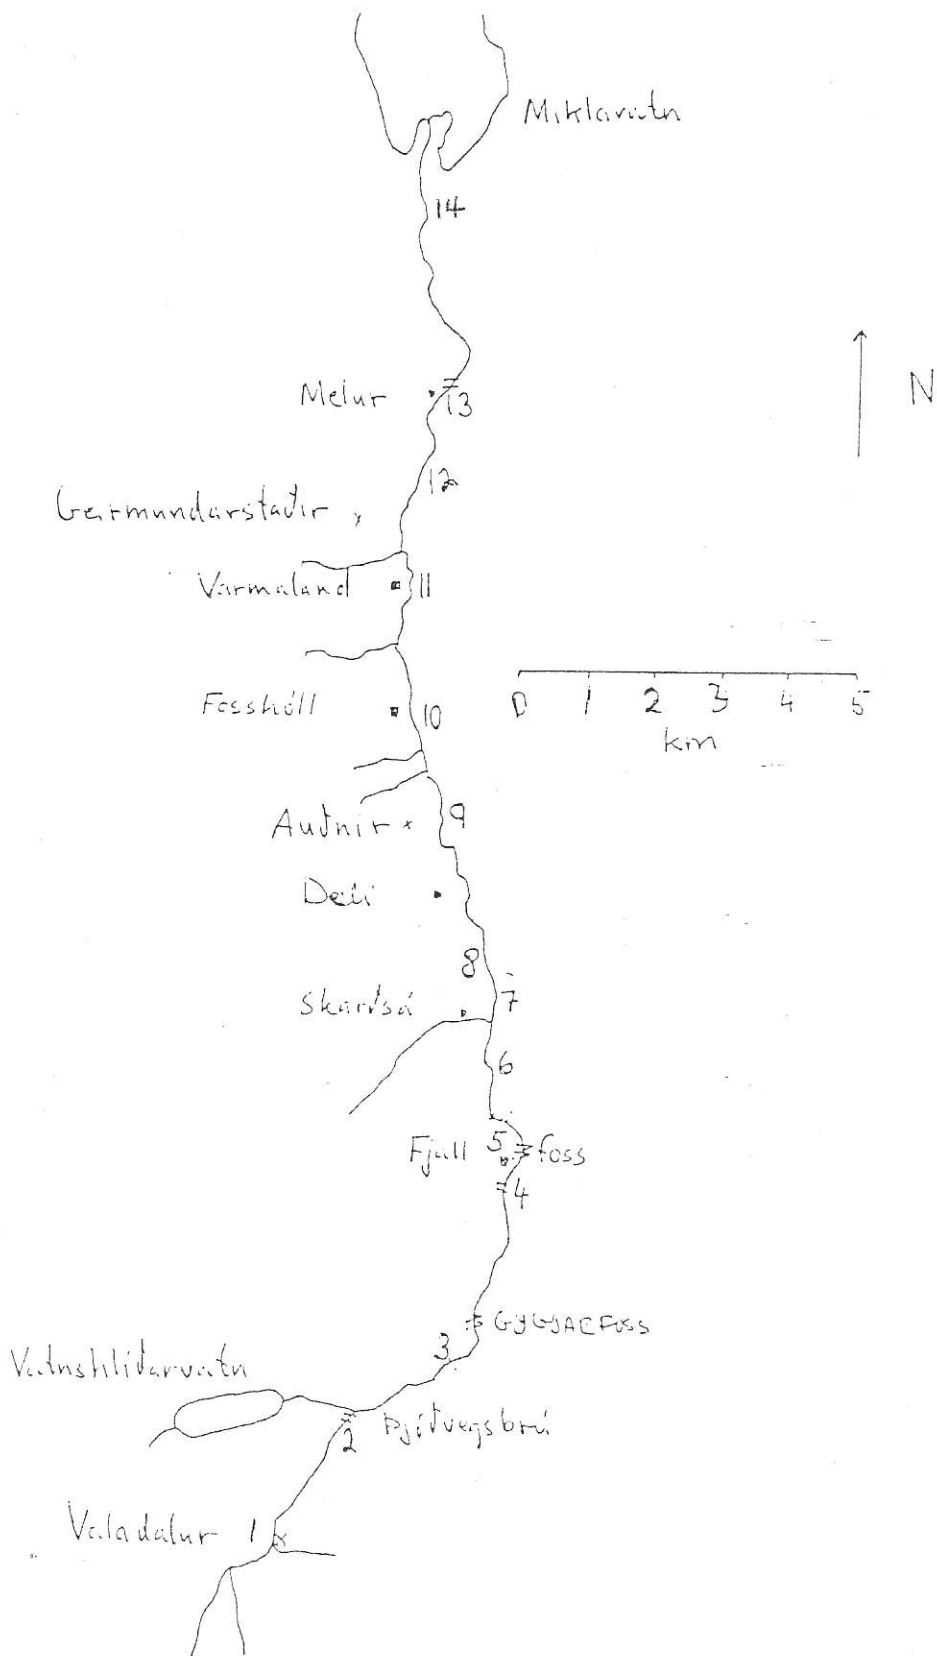 Miklavatn
14
Melur
13
12
N
Geirmundarstaðir
Varmaland
11
0 1 2 3 4 5
km
Fosshóll
10
Auðnir
9
Deili
8
7
Skarðsá
6
Fjall
5
foss
4
GYGJARFOSS
3
Vatnshlíðarvatn
Þjóðvegsbrú
2
Valadalur
1